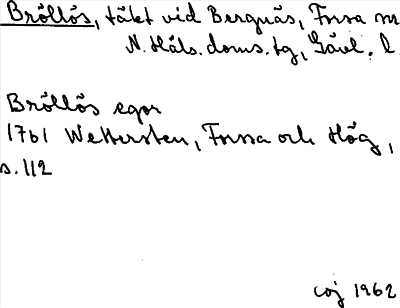 Bröllös, täkt vid Bergnäs, Forsa sn
N. Häls. doms. tg, Gävl. l.
Bröllös egor
1761 Wettersten, Forsa och Hög,
s. 112
coj 1962